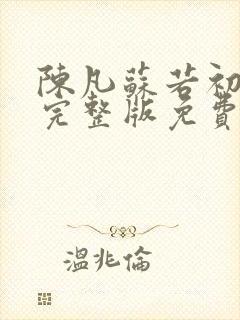 陳凡蘇若初
完整版免費
溫兆倫